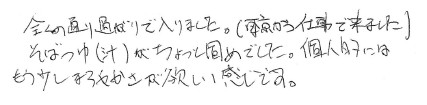 全くの通り過がりで入りました。(東京から仕事で来ました)
そばつゆ(汁)がちょっと固めでした。個人的には
もう少しまろやかさが欲しい感じです。